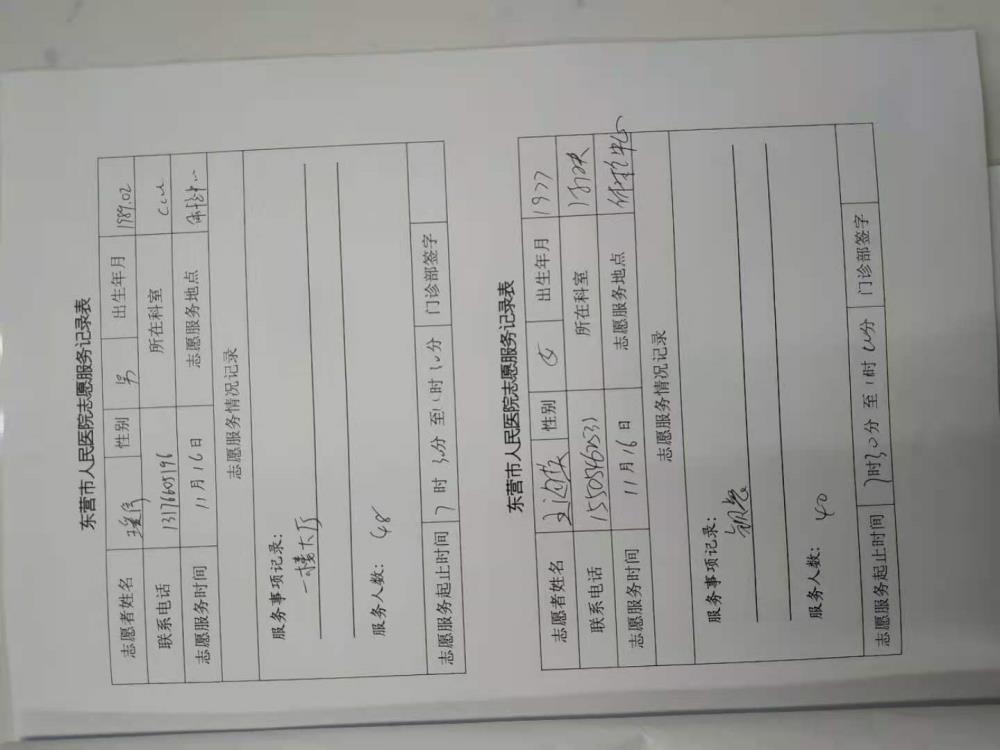 东营市人民医院志愿服务记录表
志愿者姓名 性别 男 出生年月 1989.02
联系电话 13176605196 所在科室 CCU
志愿服务时间 11月16日 志愿服务地点
志愿服务情况记录
服务事项记录:
一楼大厅
服务人数: 48
志愿服务起止时间 7时30分至11时10分 门诊部签字
东营市人民医院志愿服务记录表
志愿者姓名 性别 女 出生年月 1977
联系电话 15505462533 所在科室
志愿服务时间 11月16日 志愿服务地点 体检中心
志愿服务情况记录
服务事项记录:
服务人数: 40
志愿服务起止时间 7时30分至11时 分 门诊部签字